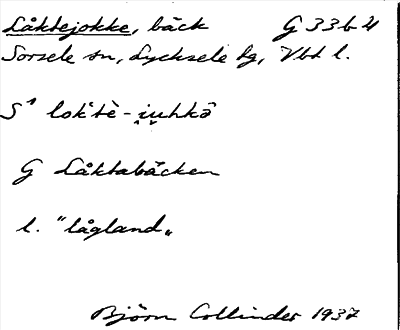 Låktejokke, bäck G 33b4
Sorsele sn, Lycksele lg, Vbt l.
S¹ lok'tè-i̯uhkɔ̄
G Låktabäcken
l. "lågland"
Björn Collinder 1937